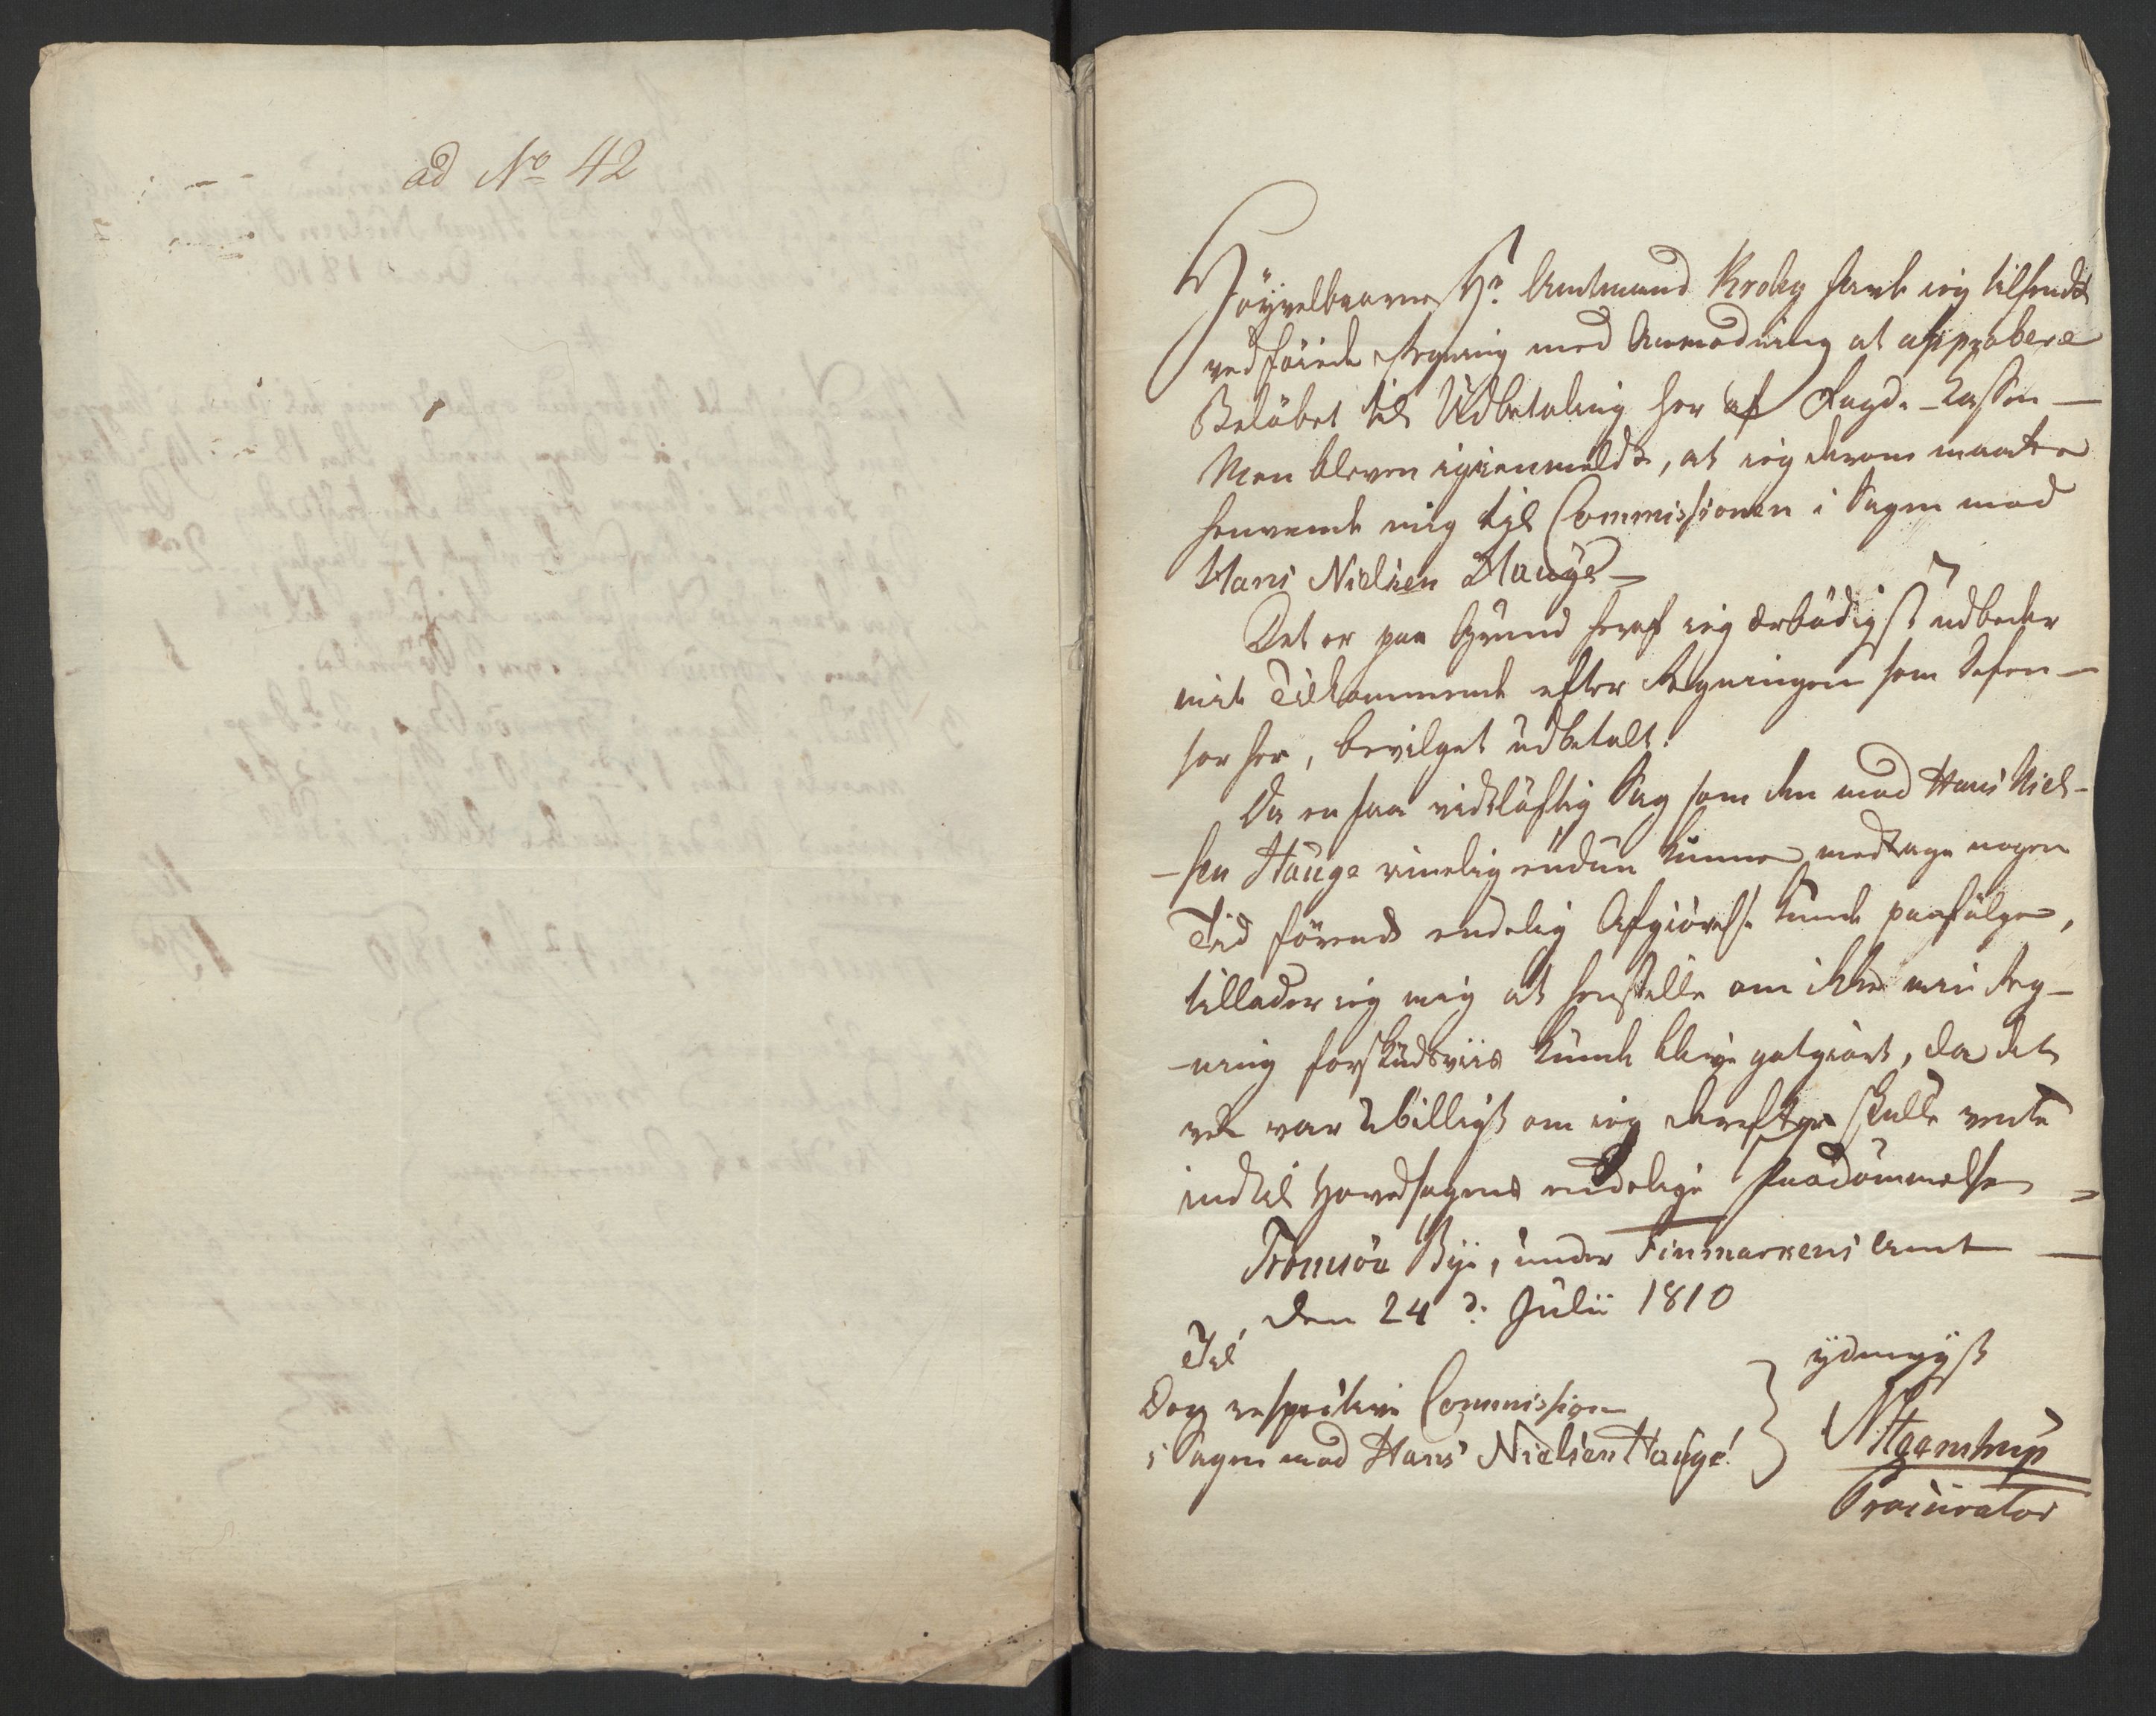 ad No 42
Høyvelbaarne Hr Amtmand Krohg havde ieg tilsendt
vedføiede Regning med Anmodning at approbere
Beløbet til Udbetaling her af Fogd-Kassen —
Men bleven igienmeldt, at ieg derom maatte
henvende mig til Commissionen i Sagen mod
Hans Nielsen Hauge —
Det er paa Grund heraf ieg ærbødigst udbeder
mit Tilkommende efter Regningen som Defen-
sor her, bevilget udbetalt.
Da en saa vidtløftig Sag som den mod Hans Niel-
-sen Hauge rimelig endnu kunne medtage nogen
Tid førend endelig Afgiørelse kunde paafølge,
tillader ieg mig at henstille om ikke min Reg-
-ning forskudsviis kunde blive godtgiort, da det
var Ubilligt om ieg derefter skulle vente
indtil Hovedsagens endelige Paadømmelse =
Tromsøe Bye, under Finmarkens Amt —
den 24 d. Julii 1810
Til
Den respective Commission
i Sagen mod Hans Nielsen Hauge!
ydmygst
Procurator